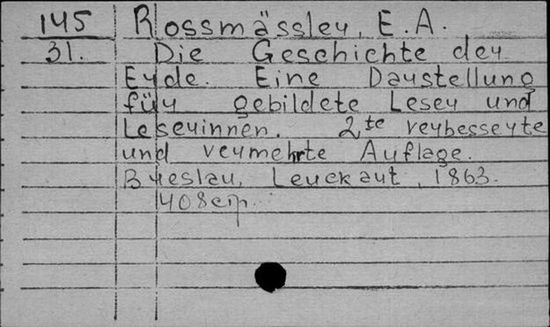 145 Rossmässler, E.A.
31. Die Geschichte der
Erde. Eine Darstellung
für gebildete Leser und
Leserinnen. 2te verbesserte
und vermehrte Auflage.
Breslau, Leuckart, 1863.